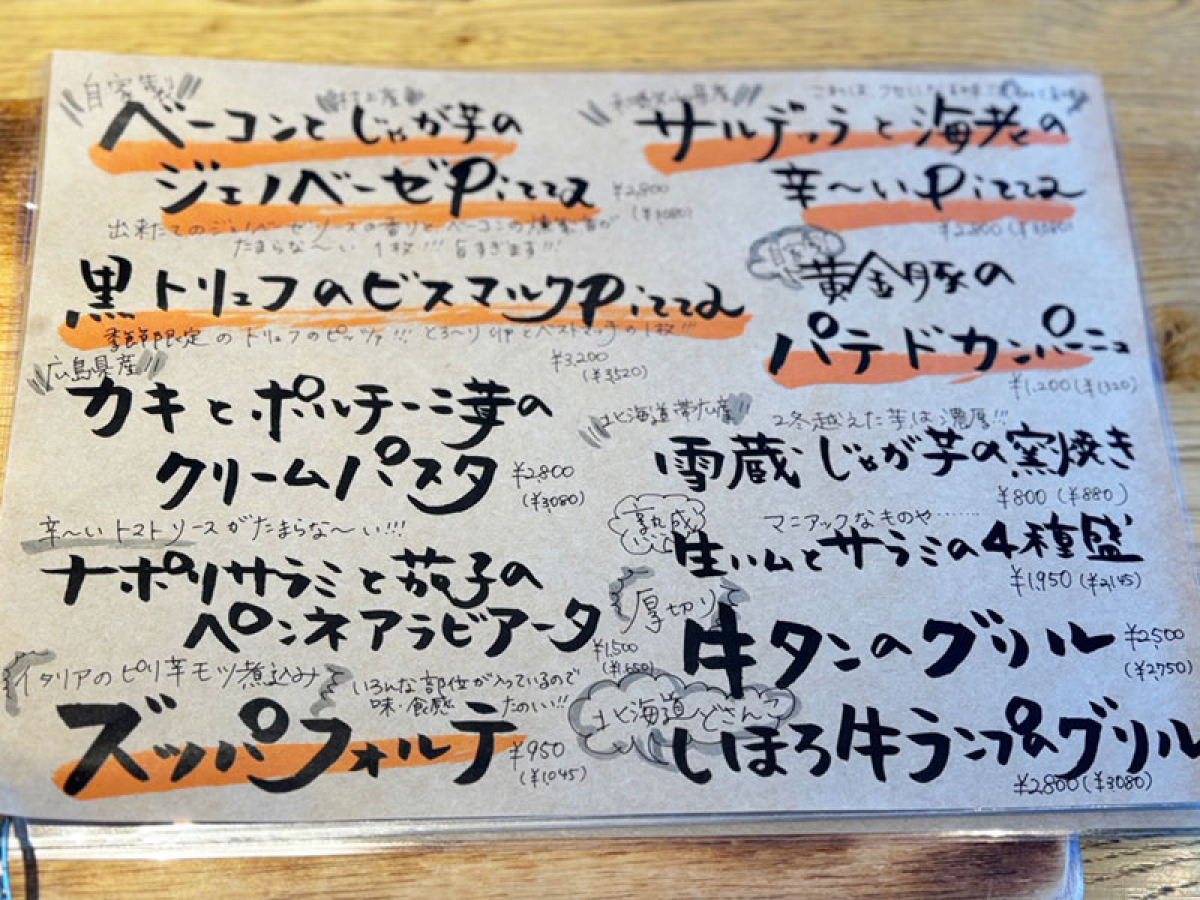 自家製
村上産
ベーコンとじゃが芋の
ジェノベーゼPizza
¥2,800
(¥3080)
出来たてのジェノベーゼソースの香りとベーコンの燻製香が
たまらな〜い 1枚!!! 旨すぎます!!!
黒トリュフのビスマルクPizza
季節限定のトリュフのピッツァ!!! とろ〜り卵とベストマッチの1枚!!!
¥3,200
(¥3,520)
広島県産
カキとポルチーニ茸の
クリームパスタ
¥2800
(¥3080)
辛〜いトマトソースがたまらな〜い!!!
ナポリサラミと茄子の
ペンネアラビアータ
¥1,500
(¥1,650)
イタリアのピリ辛モツ煮込み
いろんな部位が入っているので
味・食感 たのしい!!
ズッパフォルテ
¥950
(¥1,045)
これは、クセになる
サルデッラと海老の
辛〜いPizza
¥2,800 (¥3,080)
自家製
黄金豚の
パテドカンパーニュ
¥1,200 (¥1320)
北海道帯広産!!
2冬越えた芋は濃厚!!!
雪蔵じゃが芋の窯焼き
¥800 (¥880)
熟成
マニアックなものや……
生ハムとサラミの4種盛
¥1,950 (¥2,145)
厚切り
牛タンのグリル
¥2,500
(¥2,750)
北海道どさんこ
しほろ牛ランプのグリル
¥2,800 (¥3080)